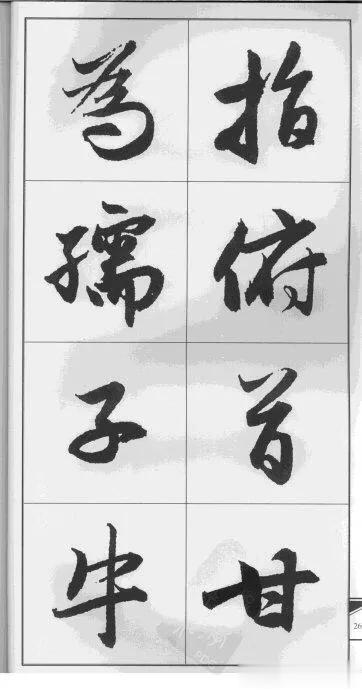 指俯首甘
為孺子牛
26